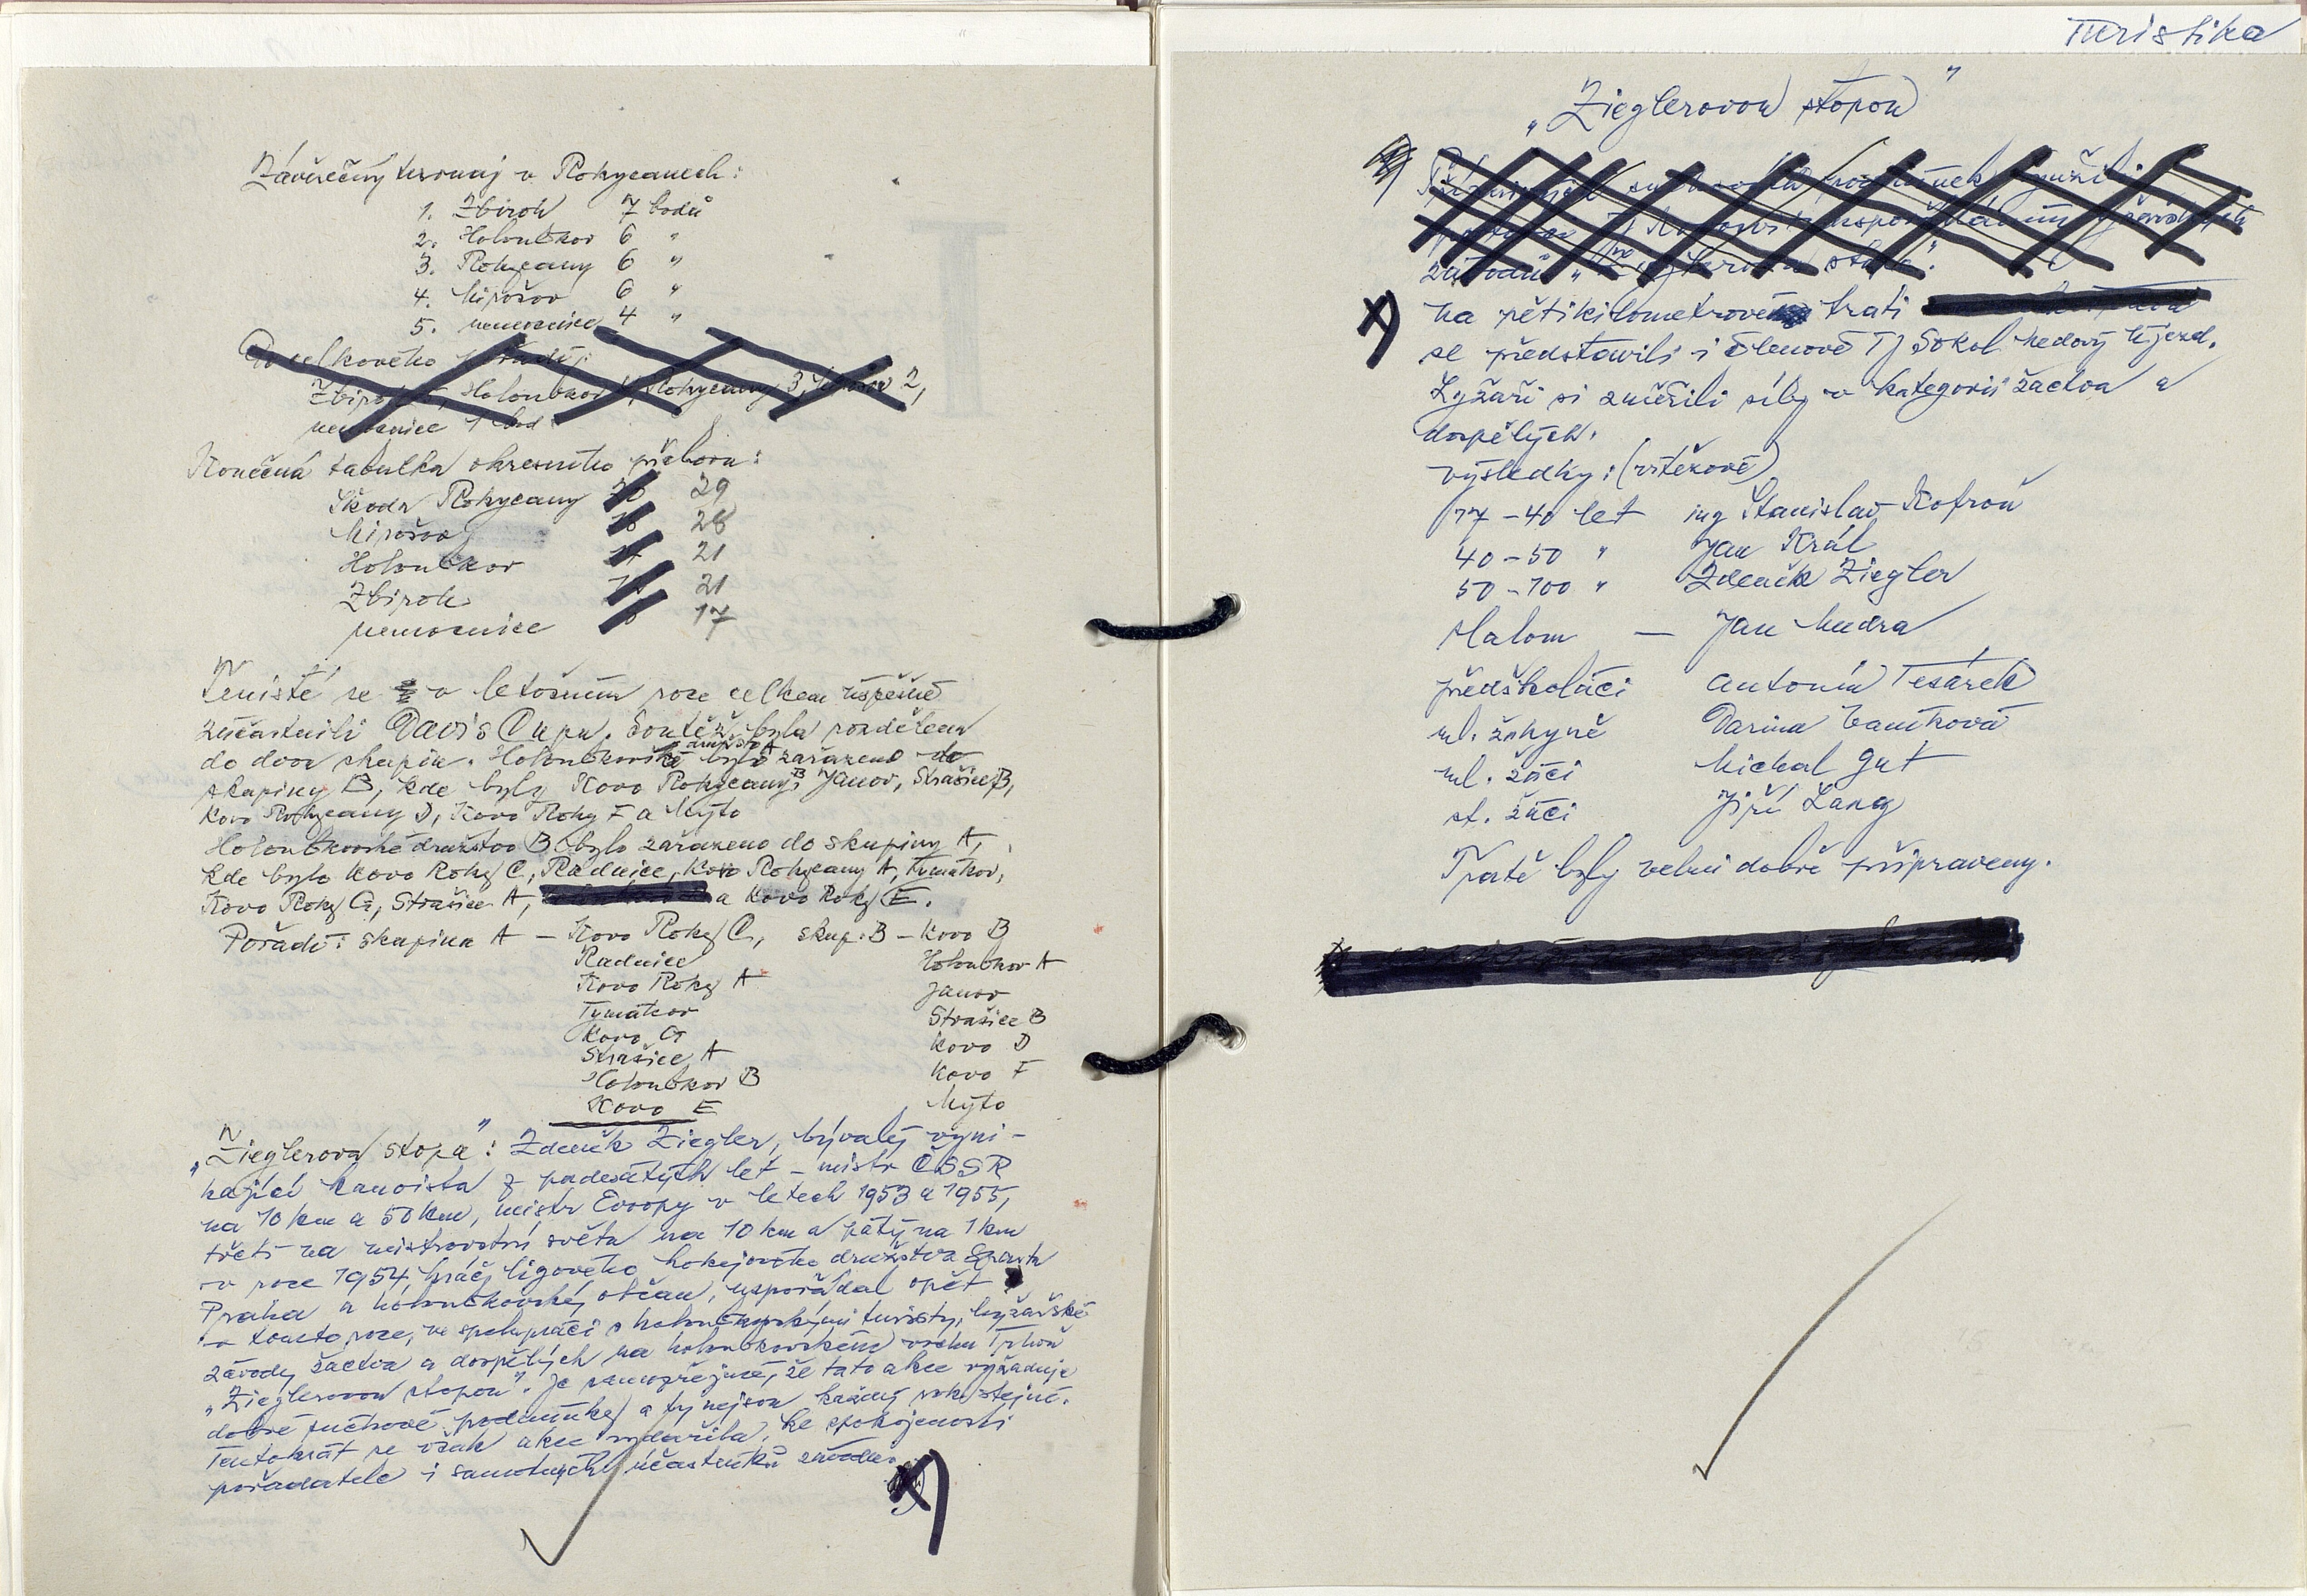 Závěrečný turnaj v Rokycanech:
1. Zbiroh 7 bodů
2. Holoubkov 6 "
3. Rokycany 6 "
4. Mirošov 6 "
5. nemocnice 4 "
Do celkového pořadí:
Zbiroh Holoubkov Rokycany 3, Mirošov 2,
nemocnice 1 bod
Konečná tabulka okresního přeboru:
Škoda Rokycany 29
Mirošov 28
Holoubkov 21
Zbiroh 21
nemocnice 17
Tenisté se v letošním roce celkem úspěšně
zúčastnili Davis Cupu. Soutěž byla rozdělena
do dvou skupin. Holoubkovské družstvo A bylo zařazeno do
skupiny B, kde byly Kovo Rokycany B, Janov, Strašice B,
Kovo Rokycany D, Kovo Roky F a Mýto
Holoubkovské družstvo B bylo zařazeno do skupiny A,
kde bylo Kovo Roky C, Radnice, Kovo Rokycany A, Tymákov,
Kovo Roky G, Strašice A, a Kovo Roky E.
Pořadí: skupina A – Kovo Roky C, skup. B – Kovo B
Radnice Holoubkov A
Kovo Roky A Janov
Tymákov Strašice B
Kovo G Kovo D
Strašice A Kovo F
Holoubkov B Mýto
Kovo E
„Zieglerova stopa": Zdeněk Ziegler, bývalý vyni-
kající kanoista z padesátých let – mistr ČSSR
na 10 km a 50 km, mistr Evropy v letech 1953 a 1955,
třetí na mistrovství světa na 10 km a pátý na 1 km
v roce 1954, hráč ligového hokejového družstva Sparta
Praha a holoubkovský občan, uspořádal opět
v tomto roce, ve spolupráci s holoubkovskými turisty, lyžařské
závody žactva a dospělých na holoubkovském vrchu Trhoň
„Zieglerovou stopou". Je samozřejmé, že tato akce vyžaduje
dobré sněhové podmínky a ty nejsou každý rok stejné.
Tentokrát se však akce vydařila, ke spokojenosti
pořadatele i samotných účastníků závodu.
Turistika
„Zieglerovou stopou"
závodů „Zieglerova stopa".
x) Na pětikilometrové trati
se představili i členové TJ Sokol Medový Újezd.
Lyžaři si změřili síly v kategorii žactva a
dospělých.
Výsledky: (vítězové)
17 – 40 let ing Stanislav Kofroň
40 – 50 " Jan Král
50 – 100 " Zdeněk Ziegler
slalom — Jan Mudra
předškoláci Antonín Tesárek
ml. žákyně Darina
ml. žáci Michal Gut
st. žáci Jiří Lang
Tratě byly velmi dobře připraveny.